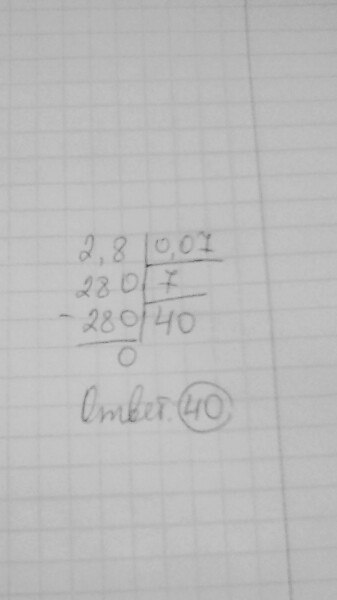 2,8 | 0,07
280 | 7
- 280 | 40
0
Ответ: 40